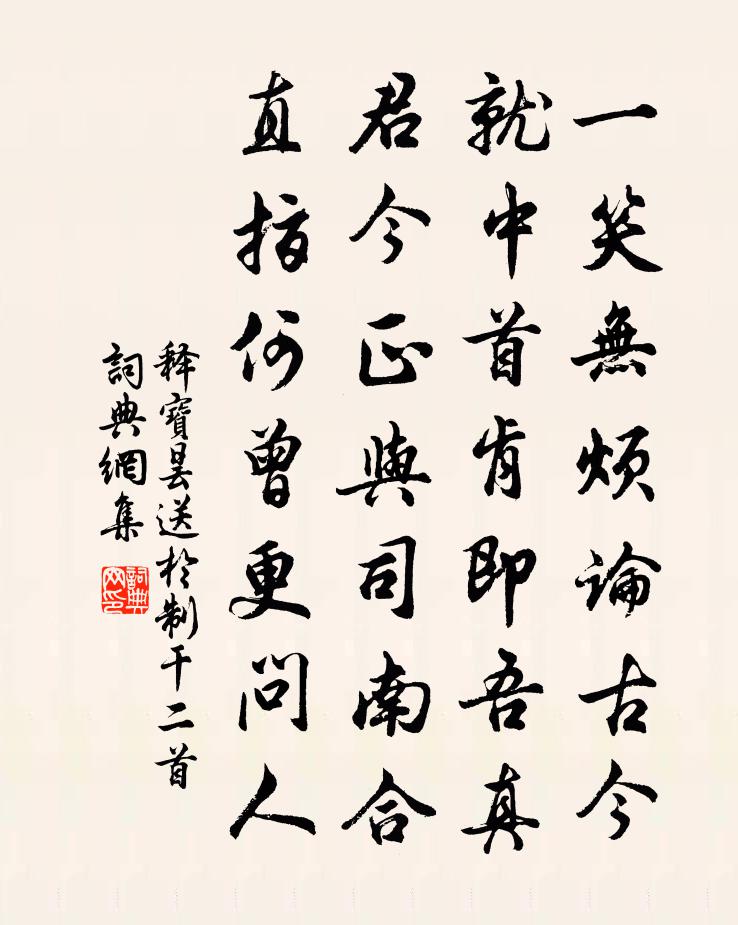 一笑無煩論古今
就中首肯即吾真
君今正與司南合
直指何曾更問人
释寶曇送於制干二首
詞典網集
詞典網印